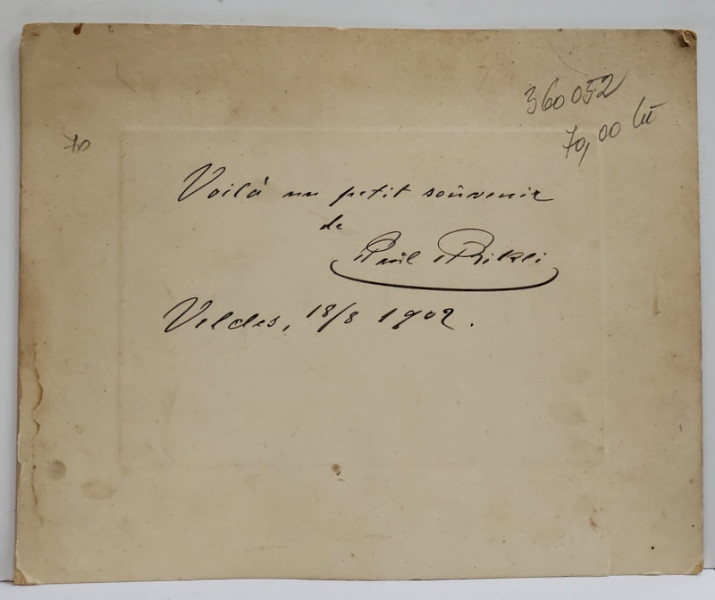 360052
70,00 lei
70
Voilà un petit souvenir
de
Paul Rikli
Veldes, 18/8 1902.